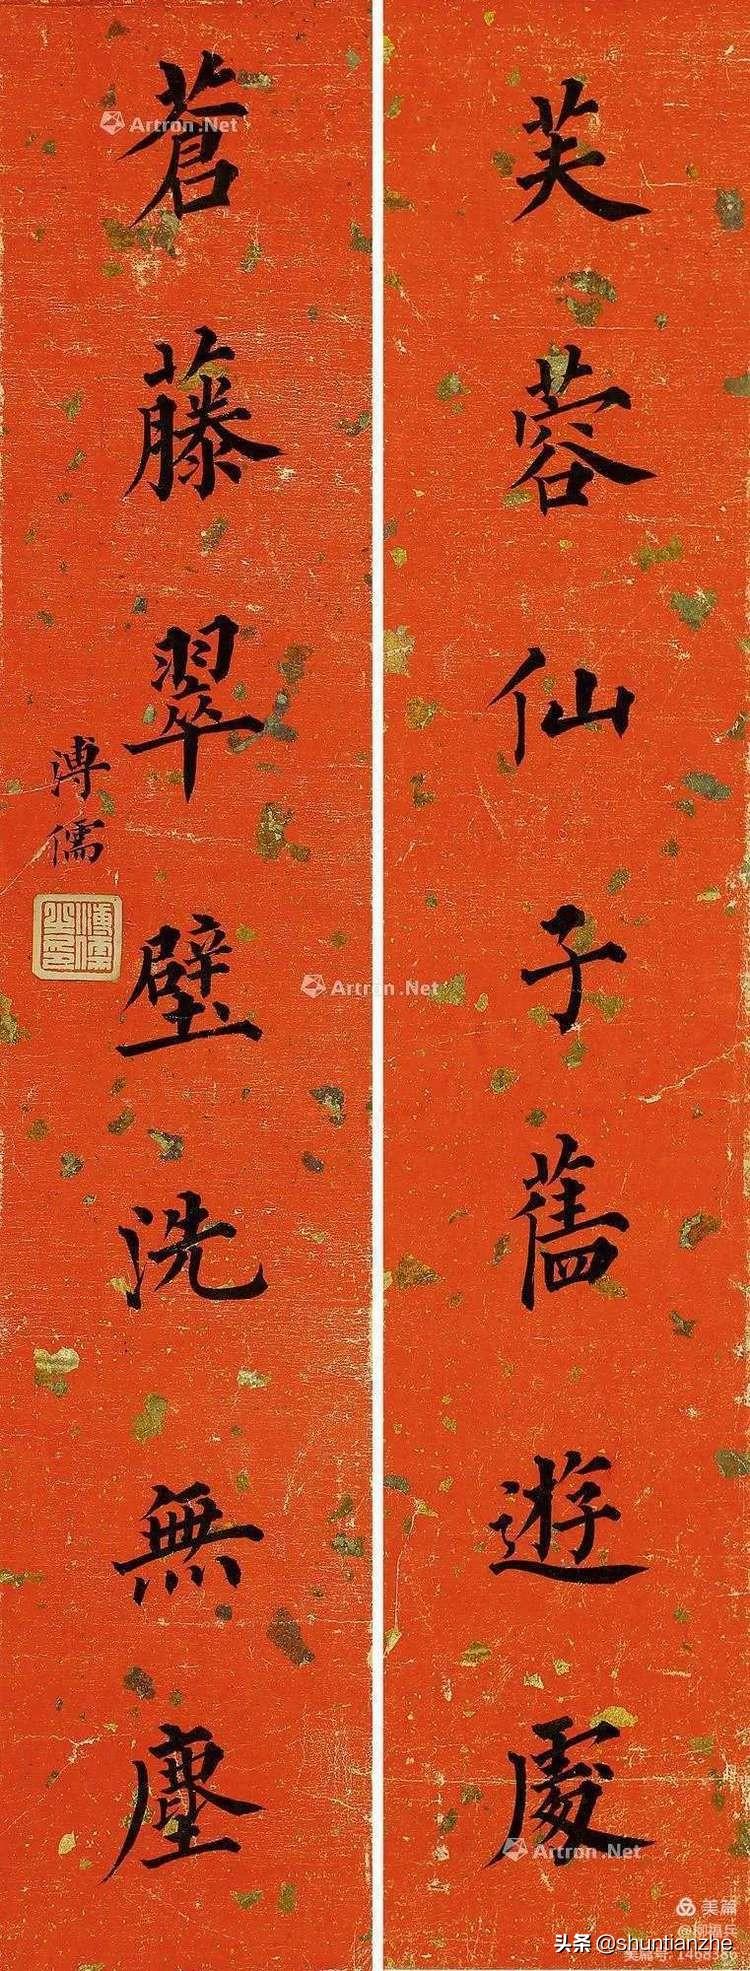 芙蓉仙子舊遊處
蒼藤翠壁洗無塵
溥儒
溥儒之印
Artron.Net
Artron.Net
Artron.Net
美篇
@柳福兵
美篇号: 1468586
头条 @shuntianzhe